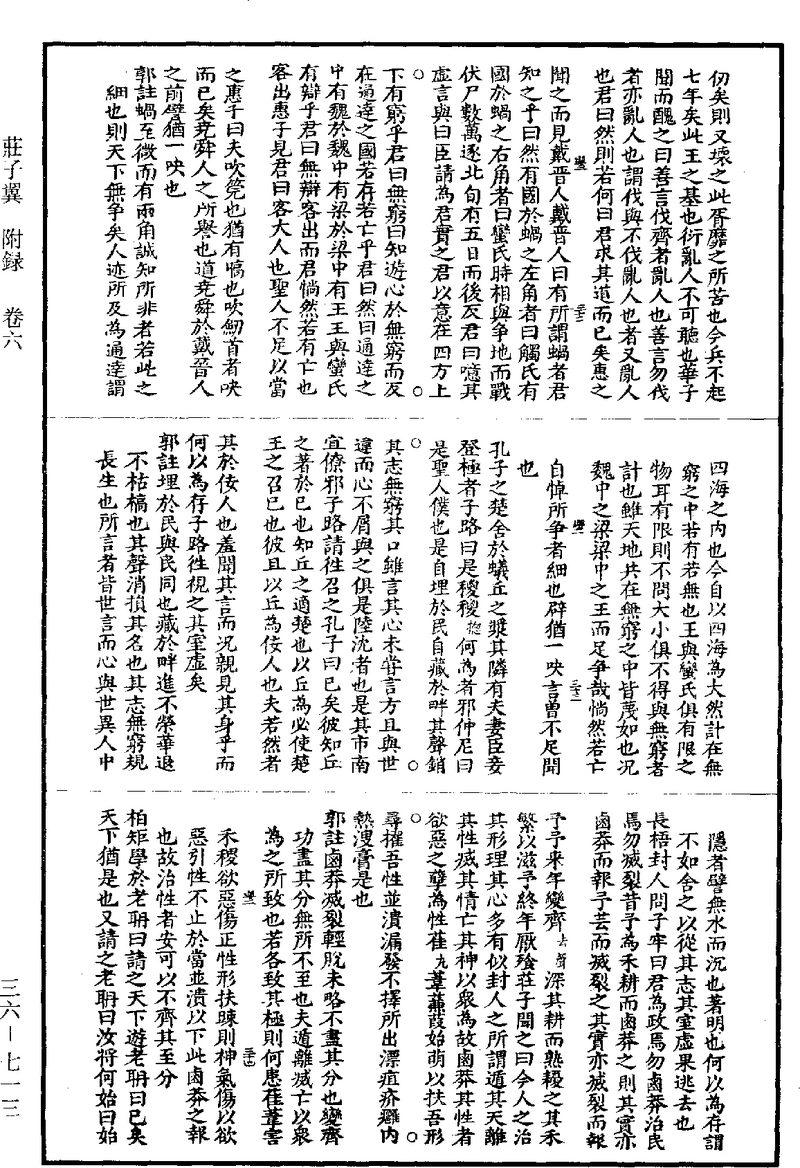 仞矣則又壞之此胥靡之所苦也今兵不起
七年矣此王之基也衍亂人不可聽也華子
聞而醜之曰善言伐齊者亂人也善言勿伐
者亦亂人也謂伐與不伐亂人也者又亂人
也君曰然則若何曰君求其道而已矣惠之
聞之而見戴晉人戴晉人曰有所謂蝸者君
知之乎曰然有國於蝸之左角者曰觸氏有
國於蝸之右角者曰蠻氏時相與爭地而戰
伏尸數萬逐北旬有五日而後反君曰噫其
虛言與曰臣請為君實之君以意在四方上
下有窮乎君曰無窮曰知遊心於無窮而反
在通達之國若存若亡乎君曰然曰通達之
中有魏於魏中有梁於梁中有王王與蠻氏
有辯乎君曰無辯客出而君惝然若有亡也
客出惠子見君曰客大人也聖人不足以當
之惠子曰夫吹筦也猶有嗃也吹劒首者吷
而已矣堯舜人之所譽也道堯舜於戴晉人
之前譬猶一吷也
郭註蝸至微而有兩角誠知所非者若此之
細也則天下無爭矣人迹所及為通達謂
四海之內也今自以四海為大然計在無
窮之中若有若無也王與蠻氏俱有限之
物耳有限則不問大小俱不得與無窮者
計也雖天地共在無窮之中皆蔑如也況
魏中之梁梁中之王而足爭哉惝然若亡
自悼所爭者細也辟猶一吷言曾不足聞
也
孔子之楚舍於蟻丘之漿其隣有夫妻臣妾
登極者子路曰是稷稷何為者邪仲尼曰
是聖人僕也是自埋於民自藏於畔其聲銷
其志無窮其口雖言其心未嘗言方且與世
違而心不屑與之俱是陸沈者也是其市南
宜僚邪子路請往召之孔子曰已矣彼知丘
之著於已也知丘之適楚也以丘為必使楚
王之召已也彼且以丘為佞人也夫若然者
其於佞人也羞聞其言而況親見其身乎而
何以為存子路往視之其室虛矣
郭註埋於民與民同也藏於畔進不榮華退
不枯槁也其聲消損其名也其志無窮規
長生也所言者皆世言而心與世異人中
隱者譬無水而沉也著明也何以為存謂
不如舍之以從其志其室虛果逃去也
長梧封人問子牢曰君為政焉勿鹵莽治民
焉勿滅裂昔予為禾耕而鹵莽之則其實亦
鹵莽而報予芸而滅裂之其實亦滅裂而報
予予來年變齊去聲深其耕而熟耰之其禾
繁以滋予終年厭飱莊子聞之曰今人之治
其形理其心多有似封人之所謂遁其天離
其性滅其情亡其神以衆為故鹵莽其性者
欲惡之孽為性萑丸葦蒹葭始萌以扶吾形
尋擢吾性並潰漏發不擇所出漂疽疥癰內
熱溲膏是也
郭註鹵莽滅裂輕脫未略不盡其分也變齊
功盡其分無所不至也夫遁離滅亡以衆
為之所致也若各致其極則何患萑葦害
禾稷欲惡傷正性形扶疎則神氣傷以欲
惡引性不止於當並潰以下此鹵莽之報
也故治性者安可以不齊其至分
柏矩學於老聃曰請之天下遊老聃曰已矣
天下猶是也又請之老聃曰汝將何始曰始
莊子翼 附録 卷六
三六－七一三